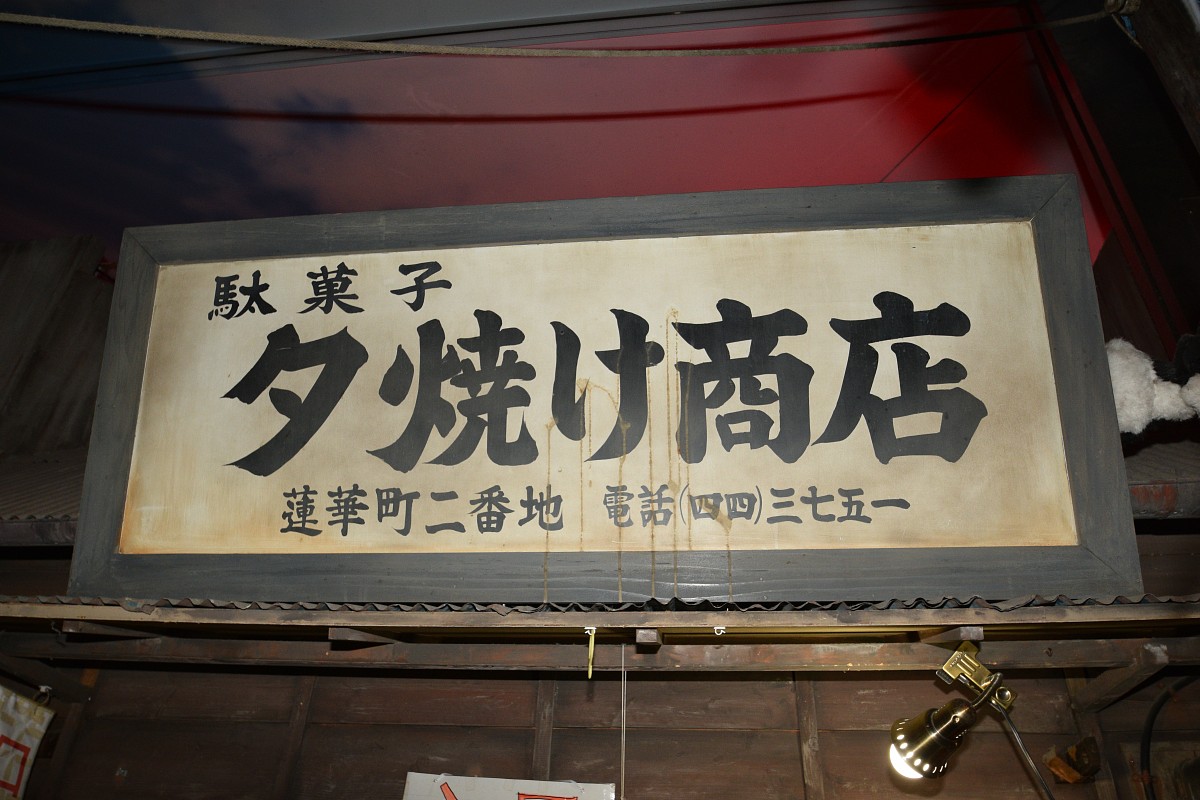 駄菓子
夕焼け商店
蓮華町二番地 電話(四四)三七五一